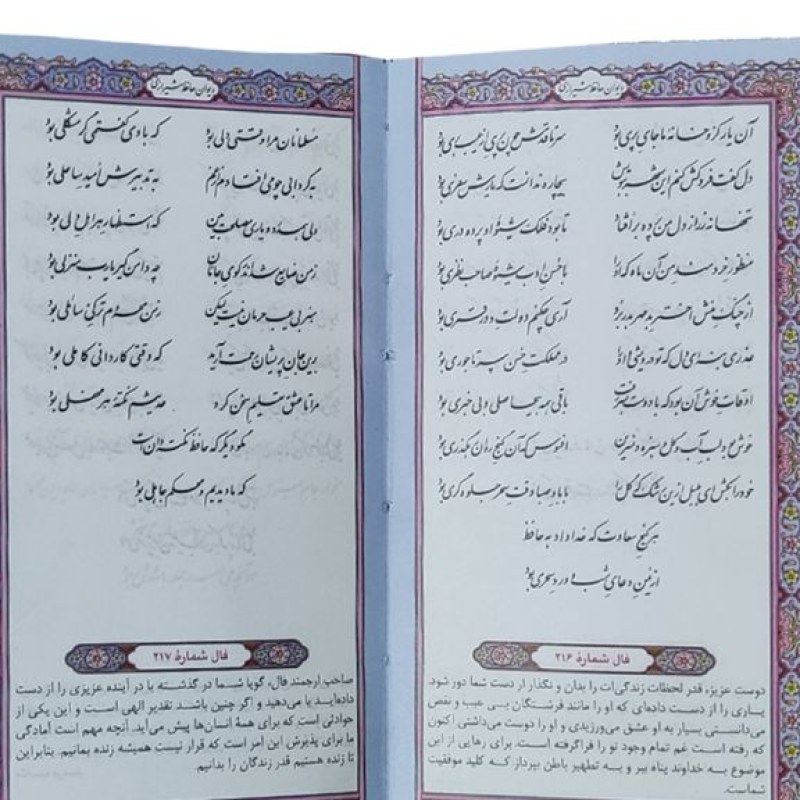 دیوان حافظ شیرازی
آن یار کزو خانهٔ ما جای پری بود سر تا قدمش چون پری از عیب بری بود
دل گفت فروکش کنم این شهر به بویش بیچاره ندانست که یارش سفری بود
تنها نه ز راز دل من پرده برافتاد تا بود فلک شیوهٔ او پرده دری بود
منظور خردمند من آن ماه که او را با حسن ادب شیوهٔ صاحب نظری بود
از چنگ منش اختر بدمهر بدر برد آری چکنم دولت دور قمری بود
عذری بنه ای دل که تو درویشی و او را در مملکت حسن سر تاجوری بود
اوقات خوش آن بود که با دوست بسر رفت باقی همه بیحاصلی و بی خبری بود
خوش بود لب آب و گل و سبزه و نسرین افسوس که آن گنج روان رهگذری بود
خود را بکش ای بلبل ازین رشک که گل را با باد صبا وقت سحر جلوه گری بود
هر گنج سعادت که خدا داد به حافظ
از یمن دعای شب و ورد سحری بود
فال شمارهٔ ۲۱۶
دوست عزیز، قدر لحظات زندگی‌ات را بدان و نگذار از دست شما دور شود.
یاری را از دست داده‌ای که او را مانند فرشتگان بی عیب و نقص
می‌دانستی بسیار به او عشق می‌ورزیدی و او را دوست می‌داشتی اکنون
که رفته است غم تمام وجود تو را فراگرفته است. برای رهایی از این
موضوع به خداوند پناه ببر و به تطهیر باطن بپرداز که کلید موفقیت
شماست.
دیوان حافظ شیرازی
مسلمانان مرا وقتی دلی بود که با وی گفتمی گر مشکلی بود
به گردابی چو می افتادم از غم به تدبیرش امید ساحلی بود
دلی همدرد و یاری مصلحت بین که استظهار هر اهل دلی بود
ز من ضایع شد اندر کوی جانان چه دامن گیر یارب منزلی بود
هنر بی عیب حرمان نیست لیکن ز من محروم‌تر کی سائلی بود
برین جان پریشان رحمت آرید که وقتی کاردانی کاملی بود
مرا تا عشق تعلیم سخن کرد حدیثم نکتهٔ هر محفلی بود
مگو دیگر که حافظ نکته دان است
که ما دیدیم و محکم جاهلی بود
فال شمارهٔ ۲۱۷
صاحب ارجمند فال، گویا شما در گذشته یا در آینده عزیزی را از دست
داده‌اید یا می‌دهید و اگر چنین باشد تقدیر الهی است و این یکی از
حوادثی است که برای همهٔ انسان‌ها پیش می‌آید. آنچه مهم است آمادگی
ما برای پذیرش این امر است که قرار نیست همیشه زنده بمانیم. بنابراین
تا زنده هستیم قدر زندگان را بدانیم.